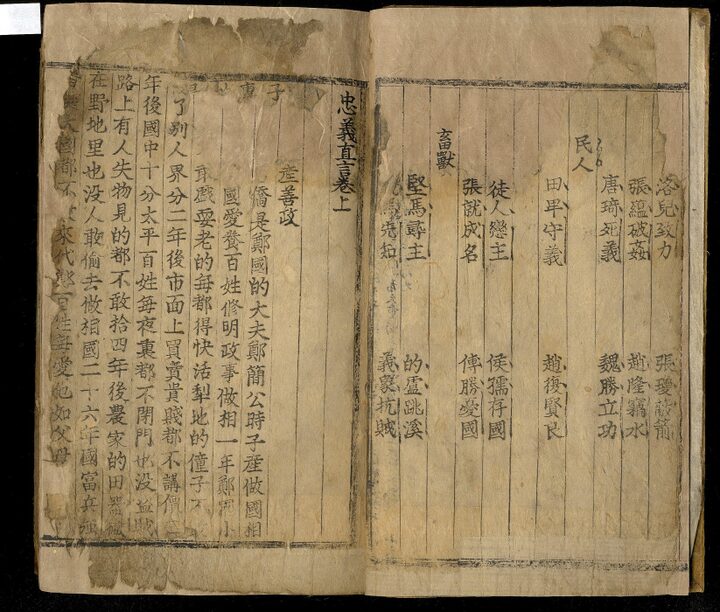 洛兒致力 張璦 箭
張蘊破姦 趙隆竊水
唐琦死義 魏勝立功
民人
田 守義 趙復賢良
徒人戀主 侯獳存國
張就成名 傅勝憂國
畜獸
堅馬尋主 的盧跳溪
先知 義 抗賊
忠義直言卷上
子產善政
僑是鄭國的大夫鄭簡公時子產做國相
國愛養百姓修明政事做相一年鄭國小
戲耍老的每都得快活犁地的僮子不
了別人界分二年後市面上買賣貴賤都不講價
年後國中十分太平百姓每夜裏都不閉門也沒盜賊
路上有人失物見的都不敢拾四年後農家的田器
在野地里也沒人敢偷去做相國二十六年國富兵強
國都不 來代 百姓每愛他如父母